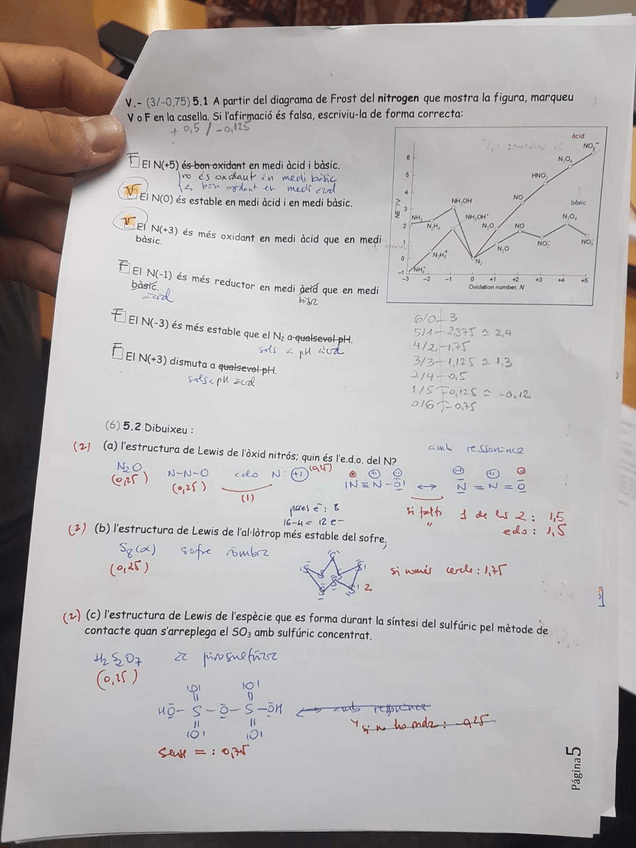 V.- (3/-0,75) 5.1 A partir del diagrama de Frost del nitrogen que mostra la figura, marqueu
V o F en la casella. Si l'afirmació és falsa, escriviu-la de forma correcta:
+0,5 / -0,125
F El N(+5) és bon oxidant en medi àcid i bàsic.
no és oxidant en medi bàsic
és bon oxidant en medi àcid
V El N(0) és estable en medi àcid i en medi bàsic.
V El N(+3) és més oxidant en medi àcid que en medi
bàsic.
F El N(-1) és més reductor en medi àcid que en medi
bàsic
bàsic.
àcid
F El N(-3) és més estable que el N₂ a qualsevol pH.
sols a pH àcid
F El N(+3) dismuta a qualsevol pH.
sols a pH àcid
àcid
bàsic
NE°/V
6
5
4
3
2
1
0
-1
NO₃⁻
N₂O₄
HNO₂
NO
N₂O
NH₃OH⁺
NH₂OH
NH₃
N₂H₄
N₂H₅⁺
NH₄⁺
N₂
N₂O
NO
NO₂⁻
N₂O₄
NO₃⁻
-3 -2 -1 0 +1 +2 +3 +4 +5
Oxidation number, N
6/0 3
5/1 - 2,375 ≃ 2,4
4/2 - 1,75
3/3 - 1,125 ≃ 1,3
2/4 - 0,5
1/5 - -0,125 ≃ -0,12
0/6 - -0,75
(6) 5.2 Dibuixeu :
(2) (a) l'estructura de Lewis de l'òxid nitrós; quin és l'e.d.o. del N?
amb ressonància
N₂O N-N-O edo N: +1 (0,25)
(0,25) (0,25) (1)
|N≡N-O| ↔ N=N=O
parells e⁻: 8
16-4 = 12 e⁻
si falta 1 de les 2 : 1,5
" edo : 1,5
(2) (b) l'estructura de Lewis de l'al·lòtrop més estable del sofre,
S₈(α) sofre ròmbic
(0,25)
2
si només cercle: 1,75
(2) (c) l'estructura de Lewis de l'espècie que es forma durant la síntesi del sulfúric pel mètode de
contacte quan s'arreplega el SO₃ amb sulfúric concentrat.
H₂S₂O₇ pirosulfúric
(0,25)
|O| |O|
HO-S-O-S-OH
|O| |O|
amb ressonància
si no ho 0,25
sense = : 0,75
Página 5